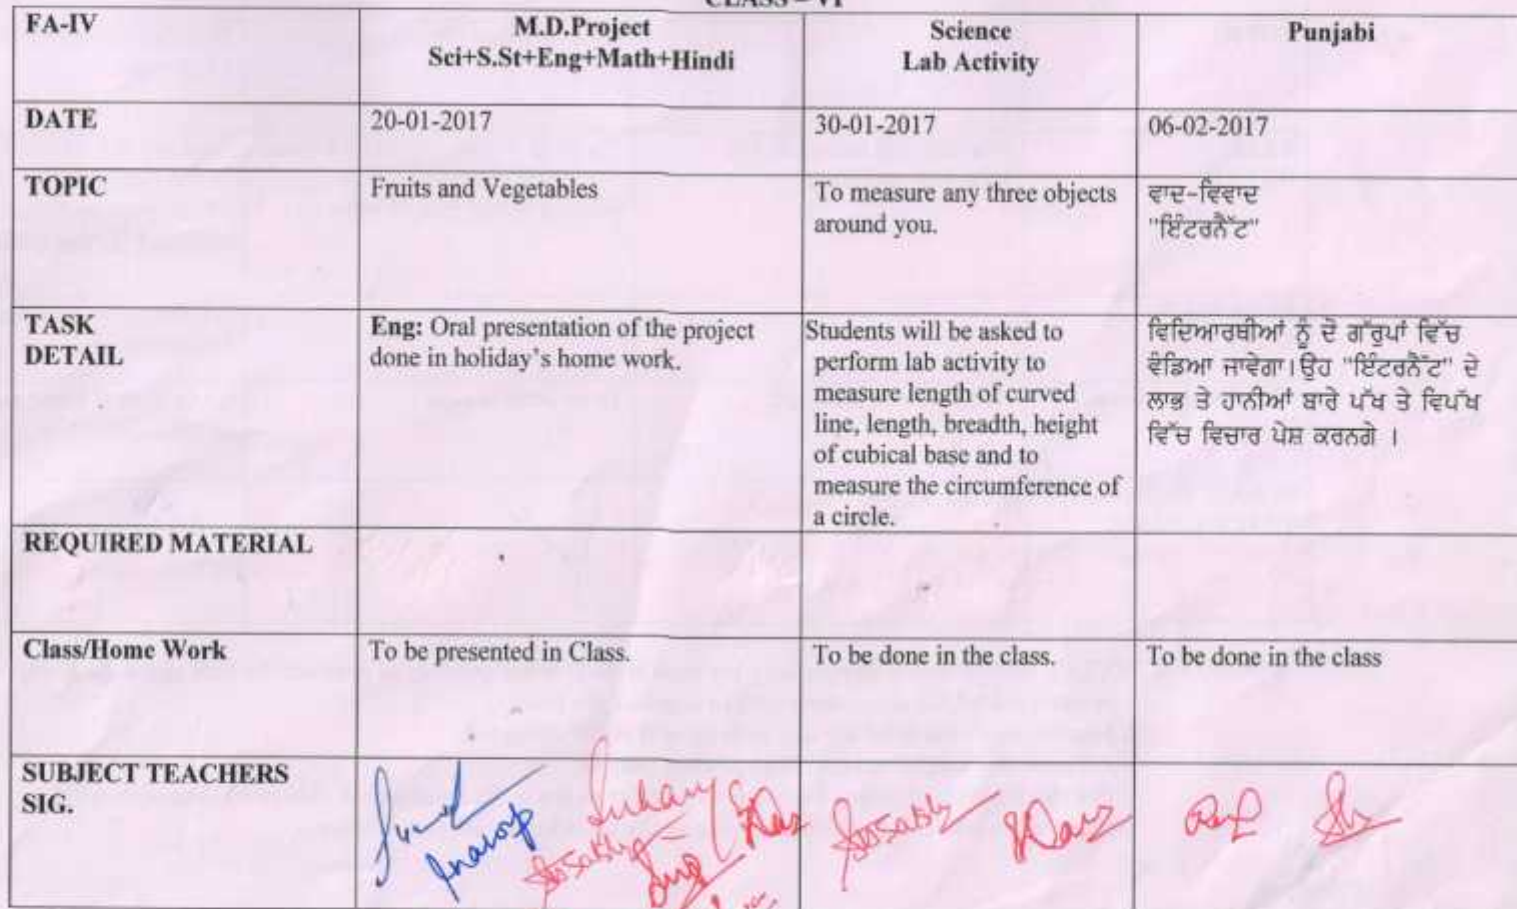 CLASS – VI
FA-IV
M.D.Project
Sci+S.St+Eng+Math+Hindi
Science
Lab Activity
Punjabi
DATE
20-01-2017
30-01-2017
06-02-2017
TOPIC
Fruits and Vegetables
To measure any three objects
around you.
ਵਾਦ-ਵਿਵਾਦ
"ਇੰਟਰਨੈੱਟ"
TASK
DETAIL
Eng: Oral presentation of the project
done in holiday's home work.
Students will be asked to
perform lab activity to
measure length of curved
line, length, breadth, height
of cubical base and to
measure the circumference of
a circle.
ਵਿਦਿਆਰਥੀਆਂ ਨੂੰ ਦੋ ਗੱਰੁਪਾਂ ਵਿੱਚ
ਵੰਡਿਆ ਜਾਵੇਗਾ।ਉਹ "ਇੰਟਰਨੈੱਟ" ਦੇ
ਲਾਭ ਤੇ ਹਾਨੀਆਂ ਬਾਰੇ ਪੱਖ ਤੇ ਵਿਪੱਖ
ਵਿੱਚ ਵਿਚਾਰ ਪੇਸ਼ ਕਰਨਗੇ ।
REQUIRED MATERIAL
Class/Home Work
To be presented in Class.
To be done in the class.
To be done in the class
SUBJECT TEACHERS
SIG.